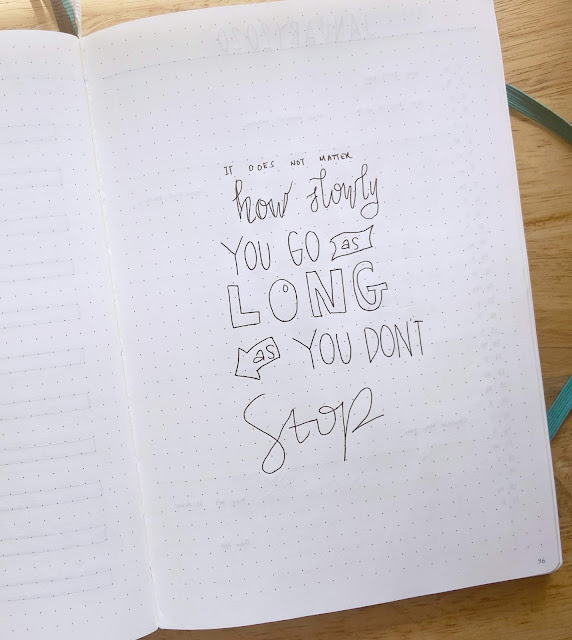 IT DOES NOT MATTER
how slowly
YOU GO as
LONG
as YOU DON'T
Stop
96